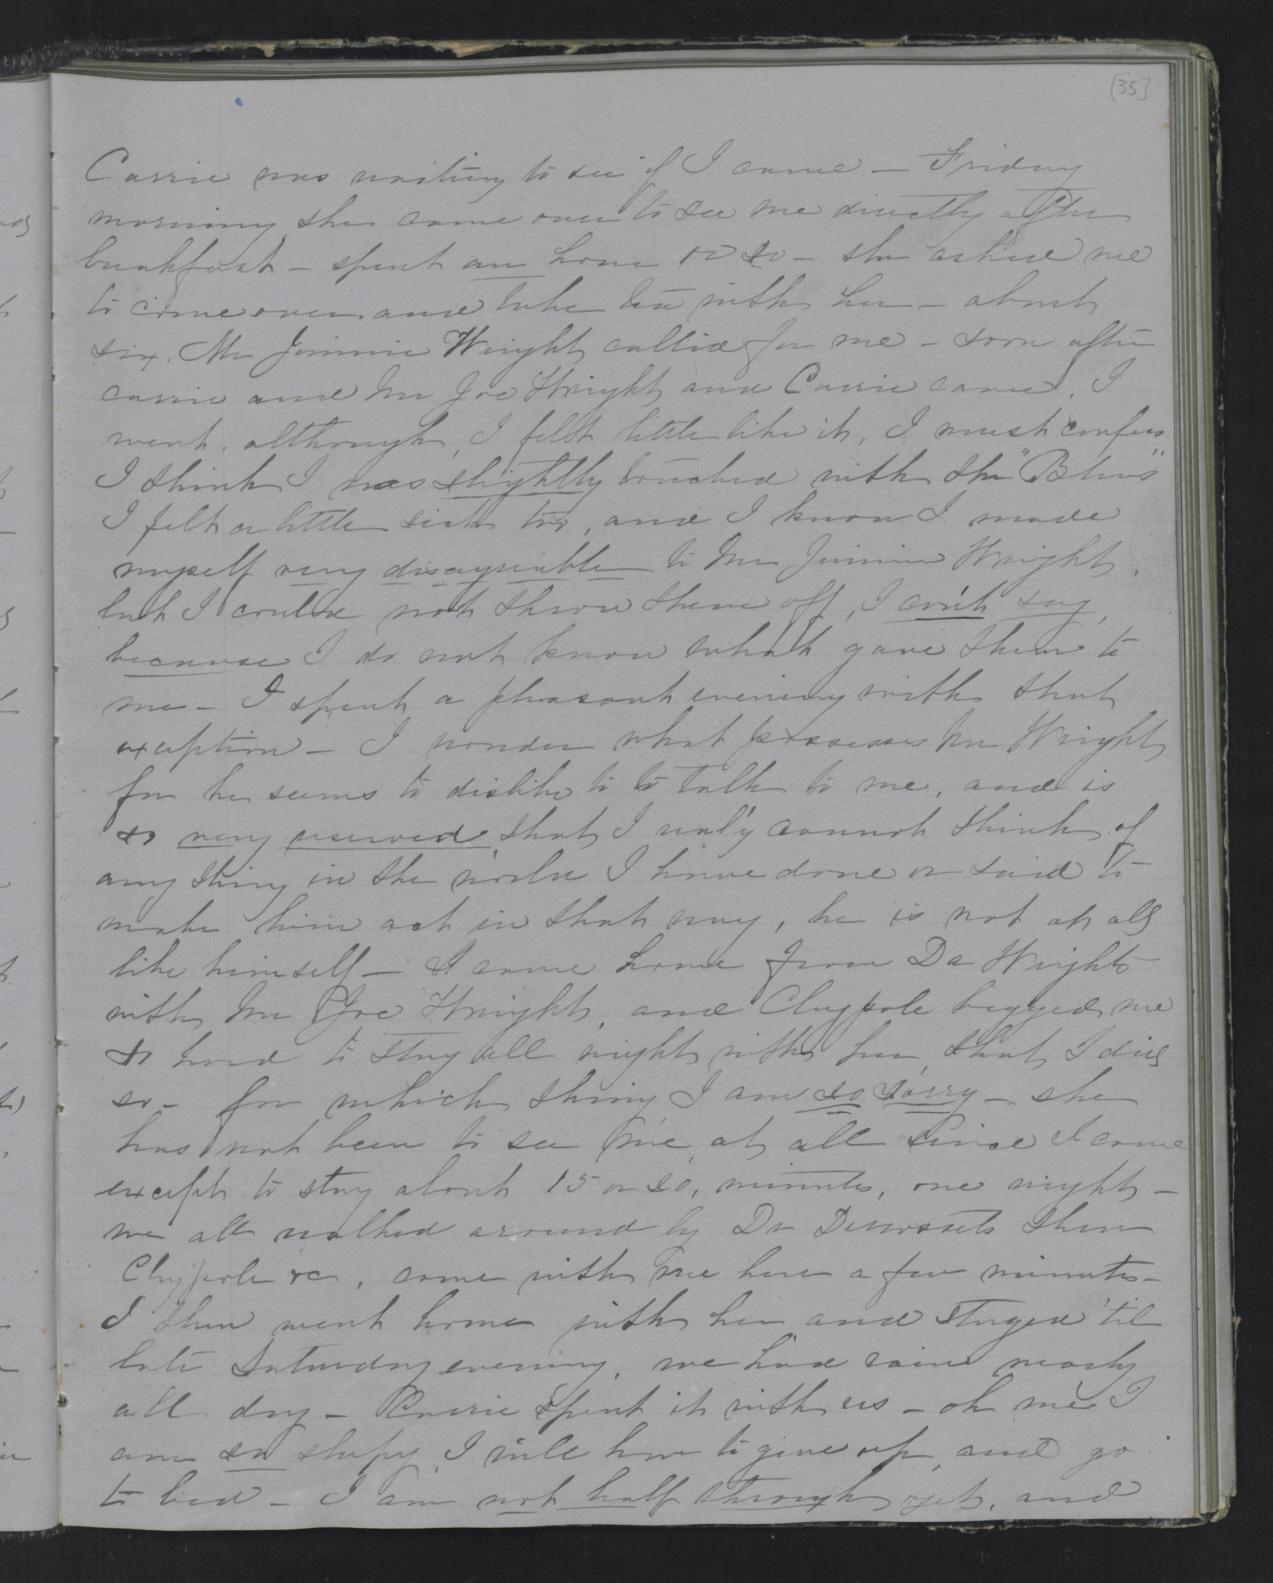 [35]
Carrie was waiting to see if I came — Friday
morning she came over to see me directly after
breakfast — spent an hour or so — she asked me
to come over and take tea with her — about
six. Mr Jimmie Wright called for me — soon after
carrie and Mr Joe Wright and Carrie came. I
went. although, I felt little like it, I must confess
I think I was slightly touched with the "Blues"
I felt a little sick too, and I know I made
myself very disagreeable to Mr Jimmie Wright.
but I could not throw them off, I can't say,
because I do not know what gave them to
me — I spent a pleasant evening with that
exception — I wonder what possesses Mr Wright
for he seems to dislike to to talk to me, and is
so very reserved, that I real'y cannot think of
any thing in the world I have done or said to
make him act in that way, he is not at all
like himself — I came home from Dr Wrights
with Mr Joe Wright, and Claypole begged me
so hard to stay all night with her, that I did
so — for which thing I am so sorry — she
has not been to see me at all since I came
except to stay about 15 or 20, minutes, one night —
we all walked around by Dr then
Claypole &c, came with me here a few minutes —
I then went home with her and stayed 'til
late Saturday evening, we had rain nearly
all day — Carrie spent it with us — oh me I
am so sleepy, I will have to give up, and go
to bed — I am not half through yet, and